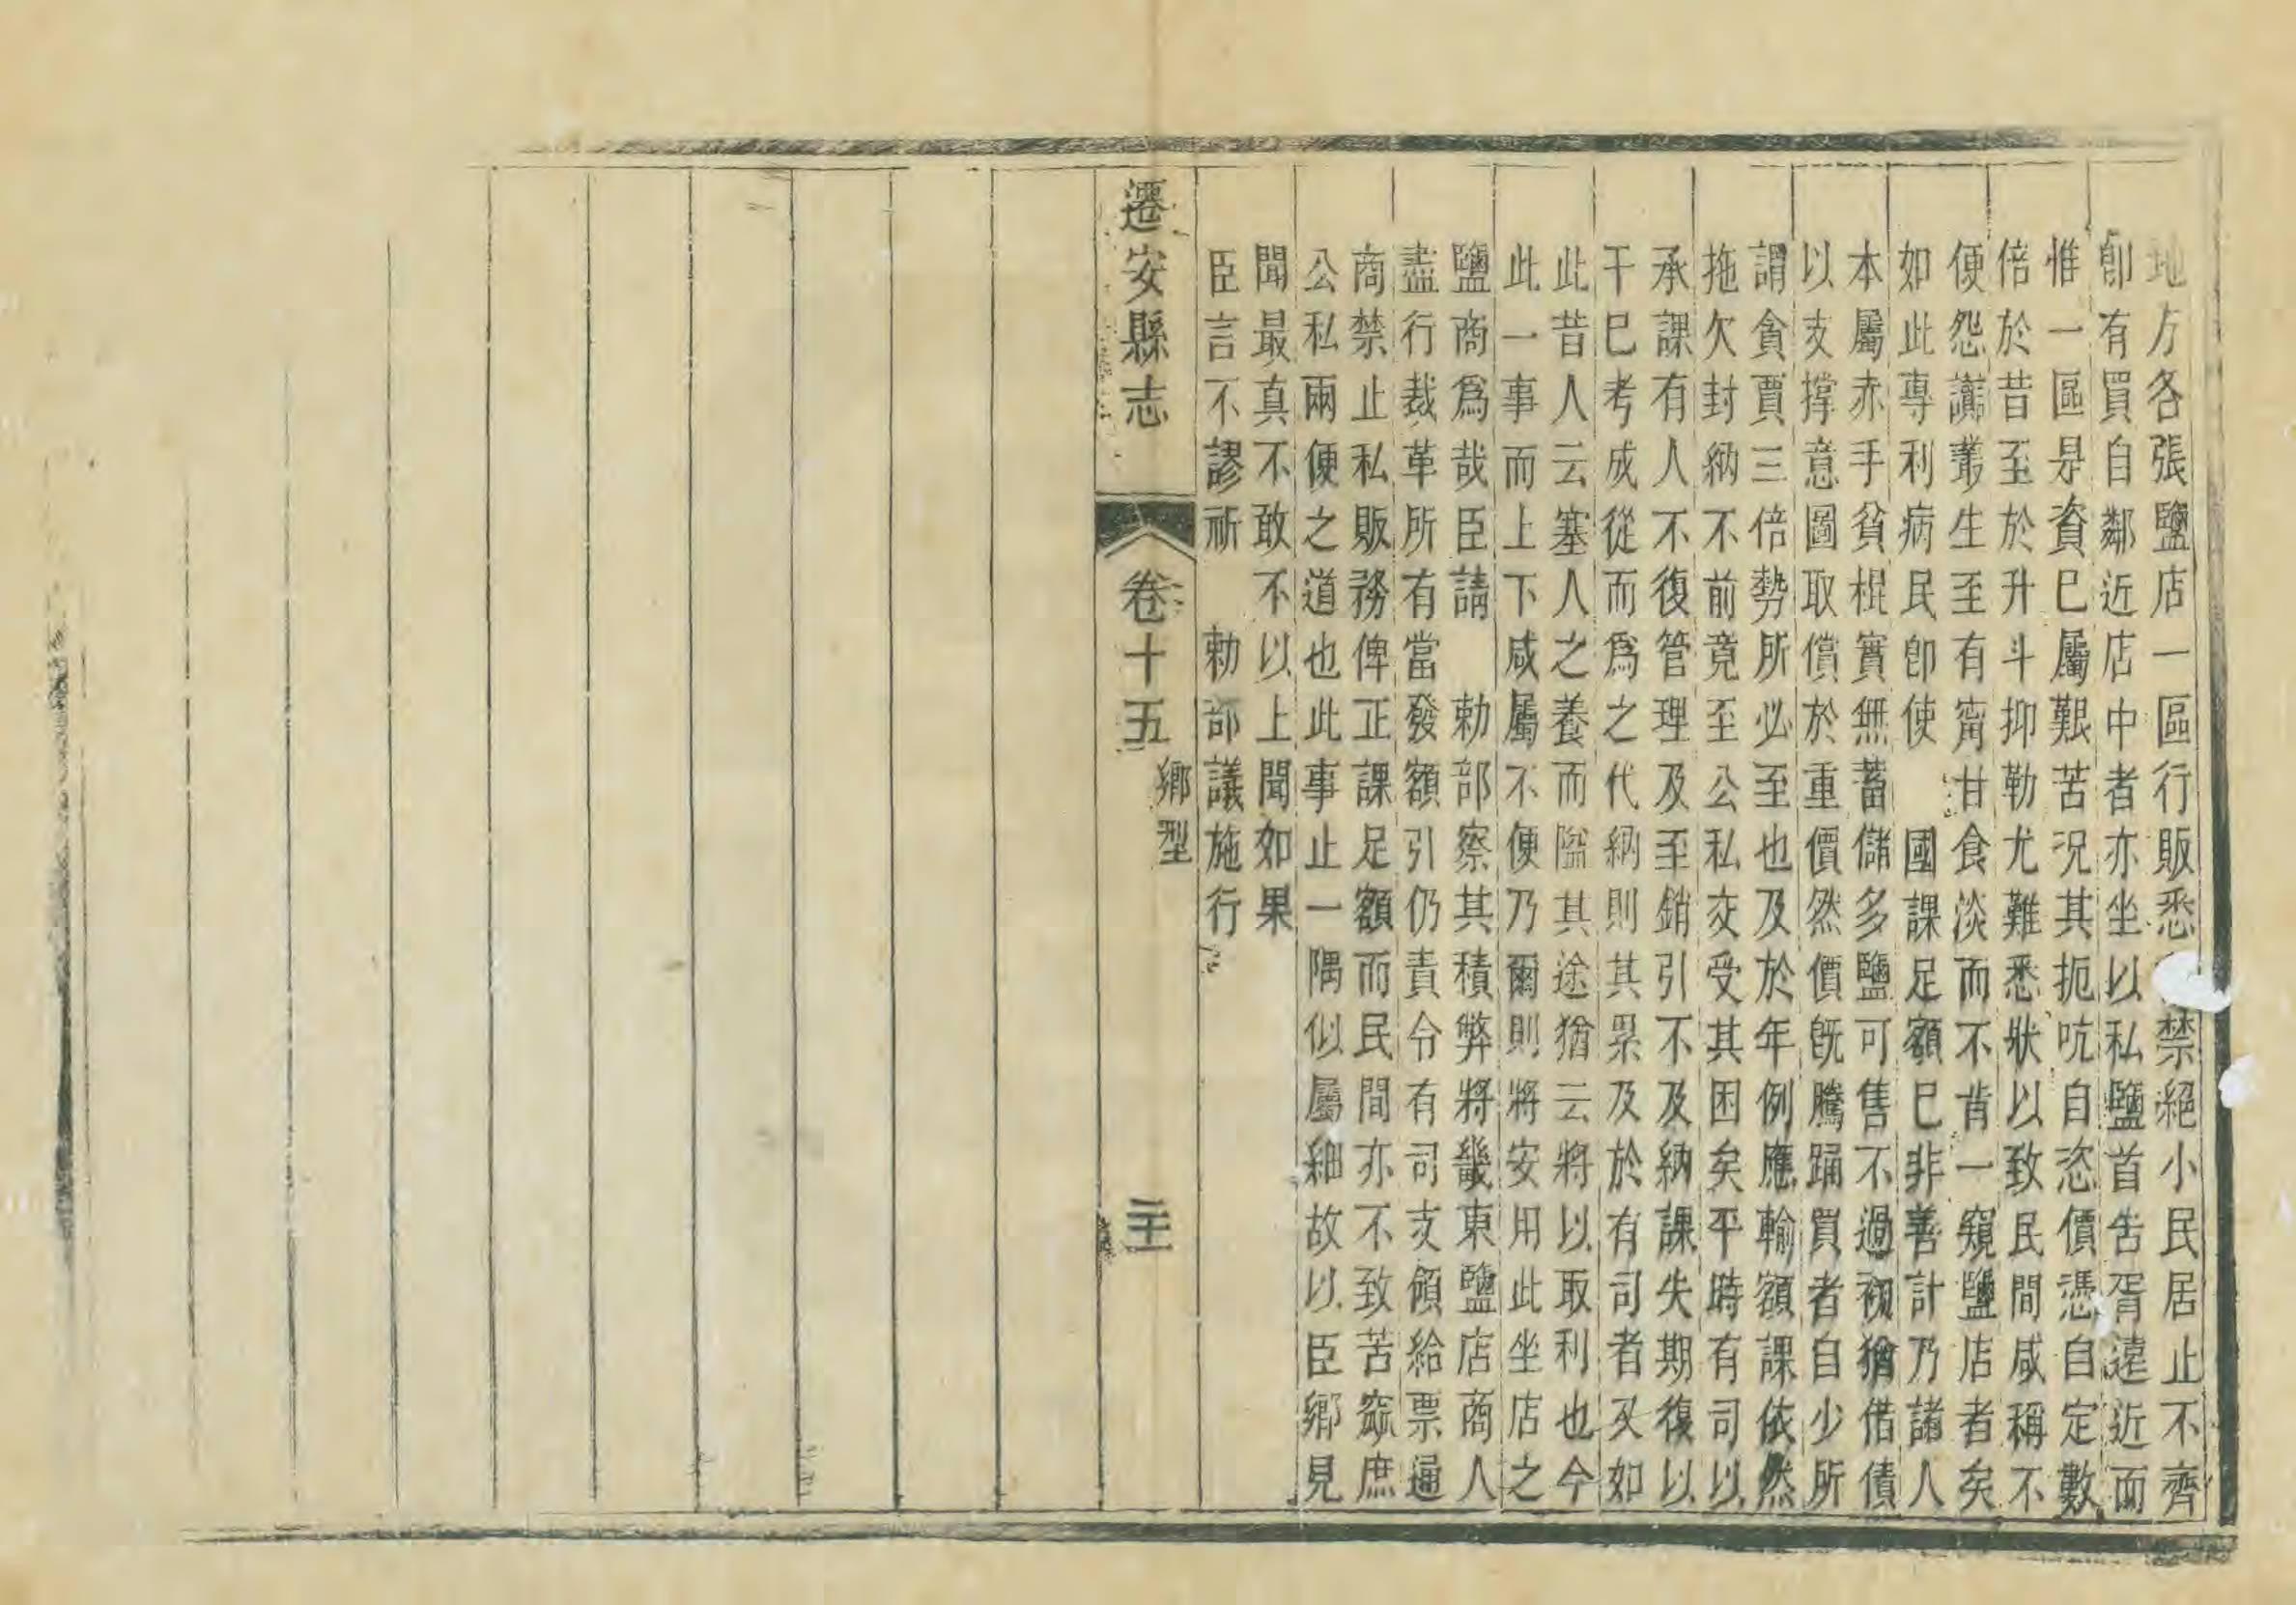 地方各張鹽店一區行販悉禁絕小民居止不齊
卽有買自鄰近店中者亦坐以私鹽首告胥遠近而
惟一區是資已屬艱苦況其扼吭自恣價憑自定數
倍於昔至於升斗抑勒尤難悉狀以致民間咸稱不
便怨讟叢生至有甯甘食淡而不肯一窺鹽店者矣
如此專利病民卽使 國課足額已非善計乃諸人
本屬赤手貧棍實無蓄儲多鹽可售不過初猶借債
以支撐意圖取償於重價然價旣騰踊買者自少所
謂貪賈三倍勢所必至也及於年例應輸額課依然
拖欠封納不前竟至公私交受其困矣平時有司以
承課有人不復管理及至銷引不及納課失期復以
干已考成從而爲之代納則其累及於有司者又如
此昔人云塞人之養而隘其途猶云將以取利也今
此一事而上下咸屬不便乃爾則將安用此坐店之
鹽商爲哉臣請 勅部察其積弊將畿東鹽店商人
盡行裁革所有當發額引仍責令有司支領給票通
商禁止私販務俾正課足額而民間亦不致苦窳庶
公私兩便之道也此事止一隅似屬細故以臣鄉見
聞最真不敢不以上聞如果
臣言不謬祈 勅部議施行
遷安縣志 卷十五 鄉型 二十一